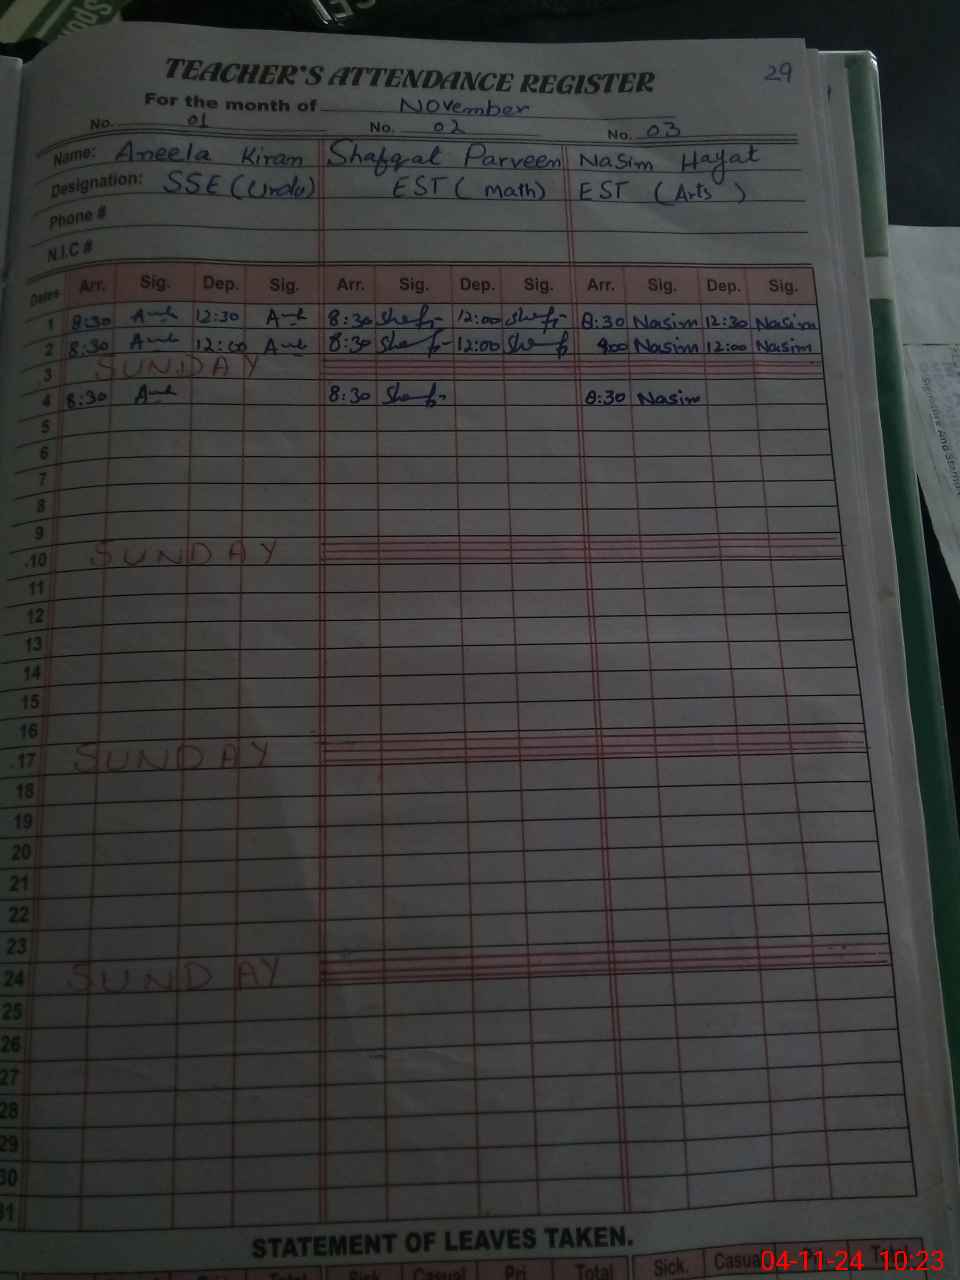 TEACHER'S ATTENDANCE REGISTER
29
For the month of November
No. 01 No. 02 No. 03
Name: Aneela Kiran Shafqat Parveen Nasim Hayat
Designation: SSE (Urdu) EST (math) EST (Arts)
Phone #
N.I.C #
Dates Arr. Sig. Dep. Sig. Arr. Sig. Dep. Sig. Arr. Sig. Dep. Sig.
1 8:30 12:30 8:30 12:00 8:30 Nasim 12:30 Nasim
2 8:30 12:00 8:30 12:00 Nasim 12:00 Nasim
3 SUNDAY
4 8:30 8:30 8:30 Nasim
5
6
7
8
9
10 SUNDAY
11
12
13
14
15
16
17 SUNDAY
18
19
20
21
22
23
24 SUNDAY
25
26
27
28
29
30
31
STATEMENT OF LEAVES TAKEN.
Total Sick. Casual Pri Total Sick. Casual Total
04-11-24 10:23
Signature And Stamp